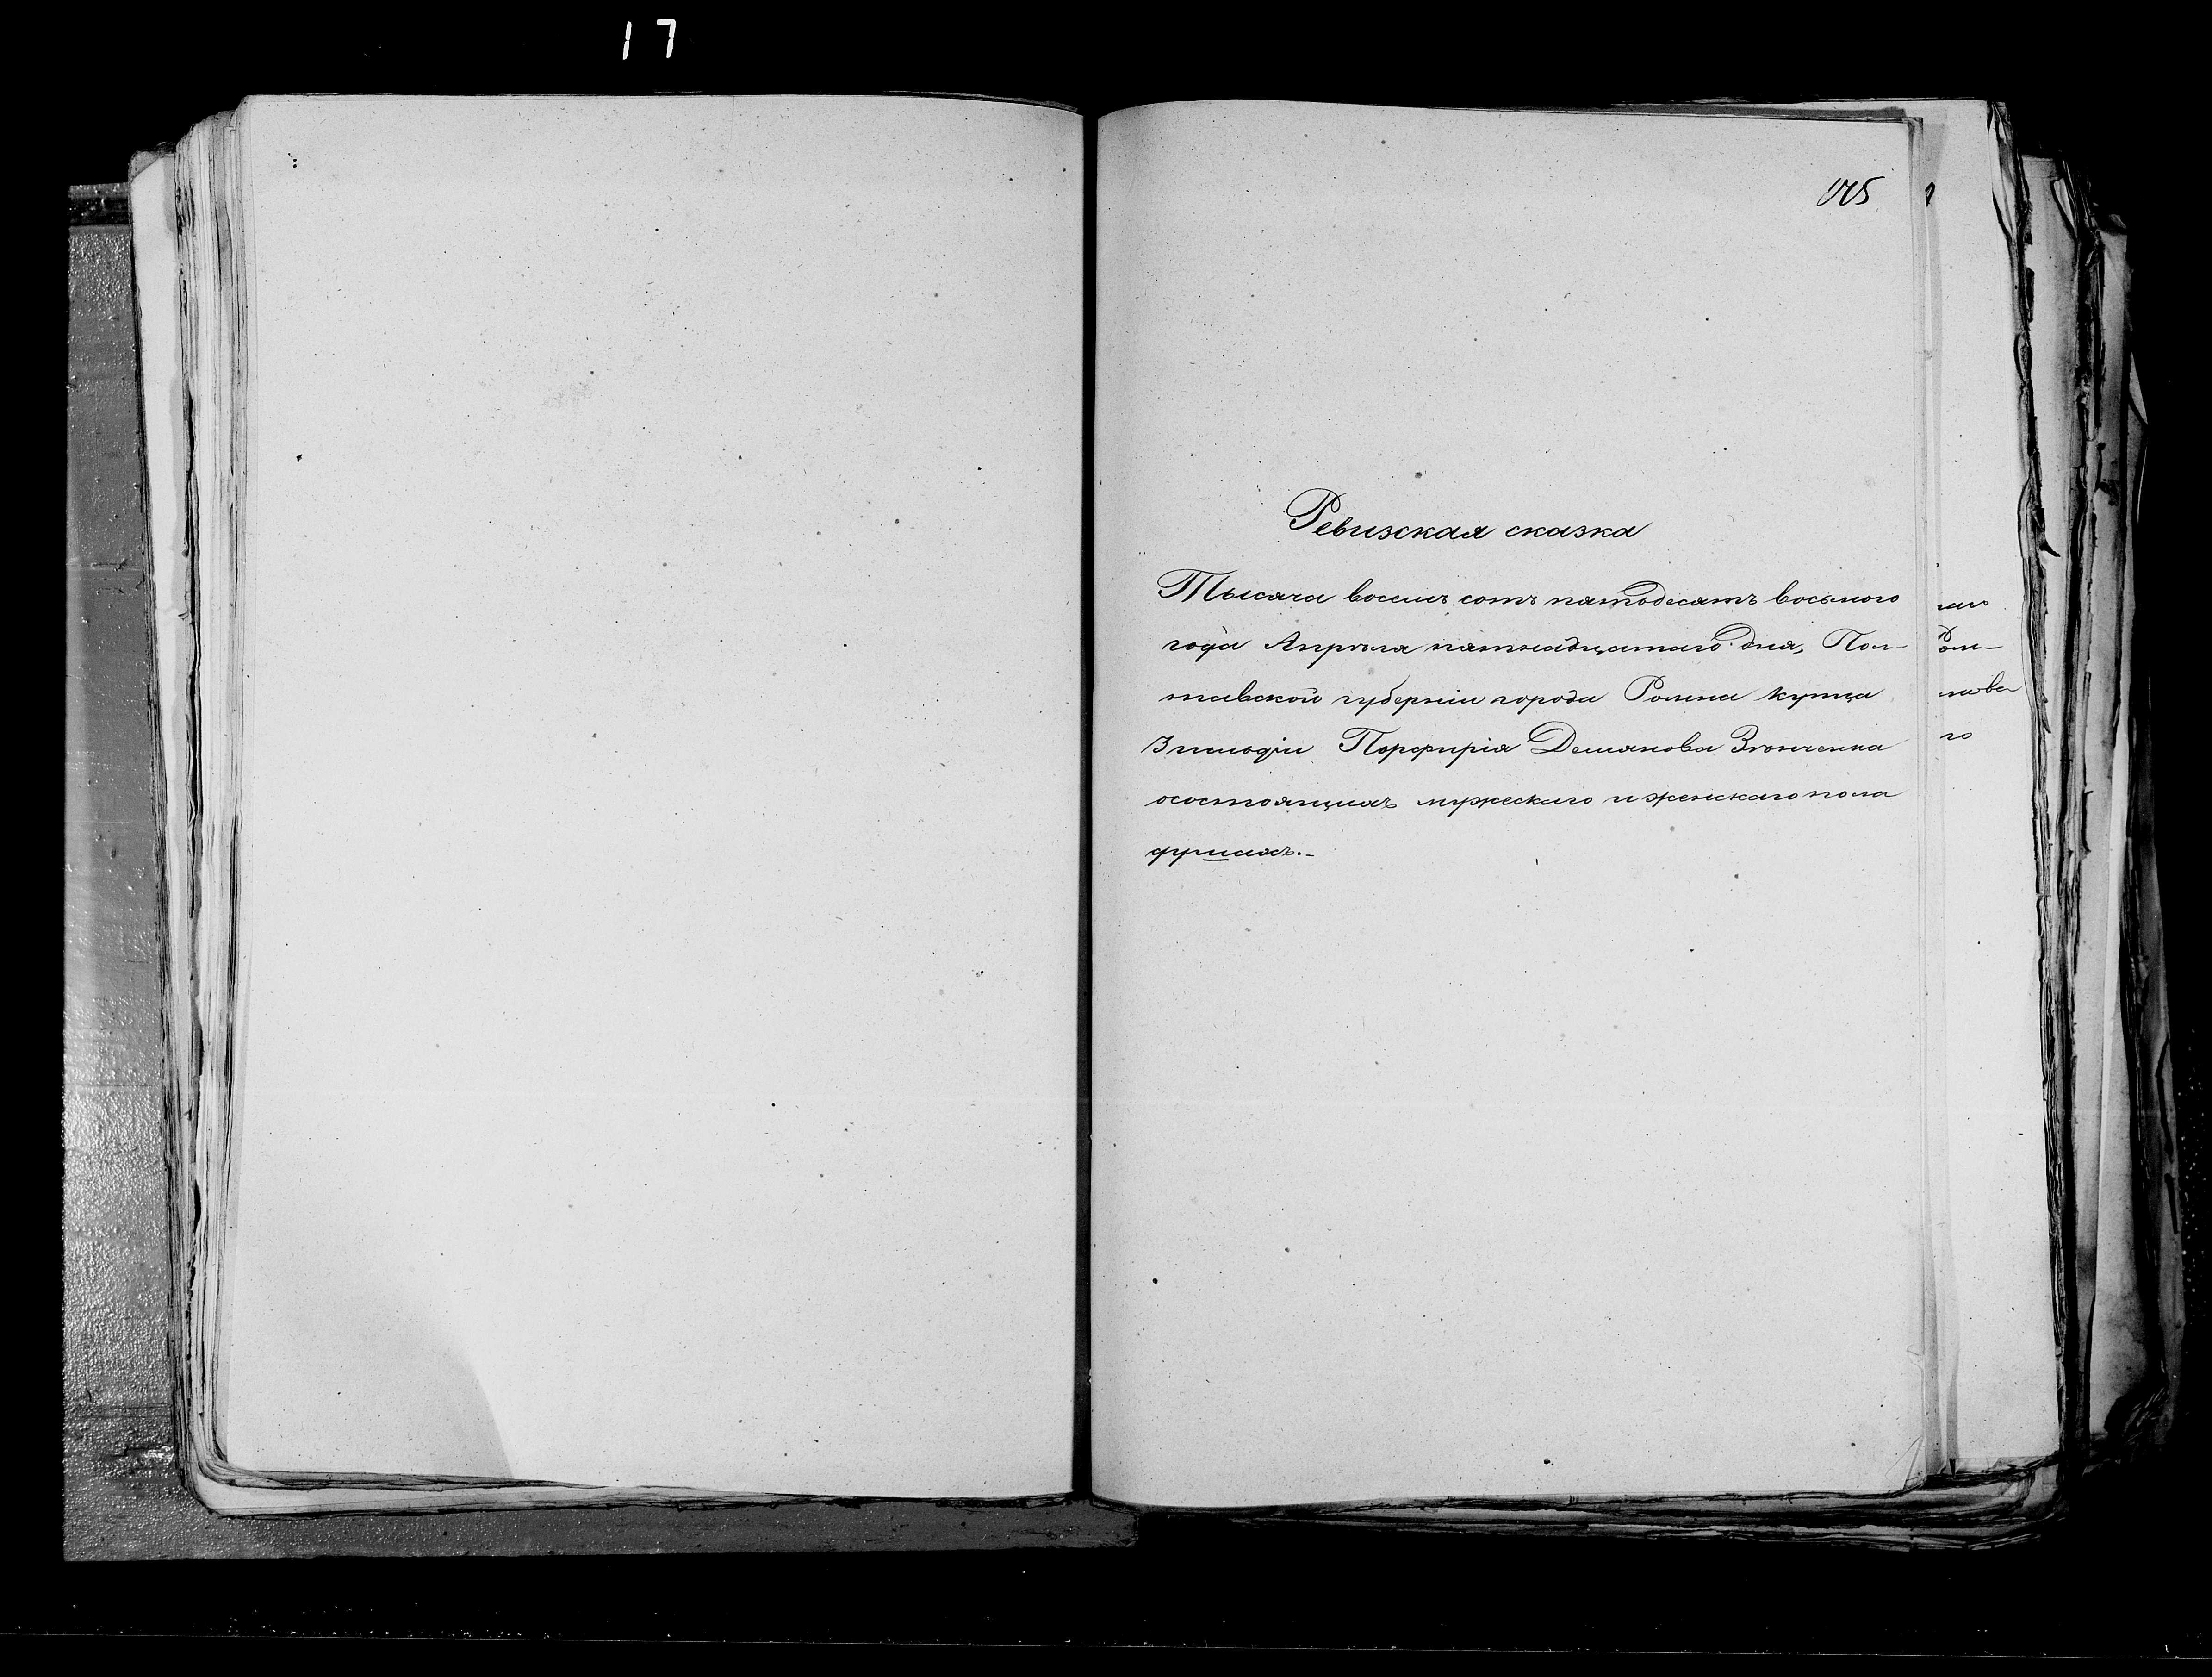 17
Ревизская сказка
Тысяча восемь сотъ пятьдесятъ восьмого
года Апрѣля пятнадцатаго дня, Пол-
тавской губерніи города Ромна купца
3 гильдіи Порфирія Демянова
осостоящихъ мужескаго и женскаго пола
душахъ.-